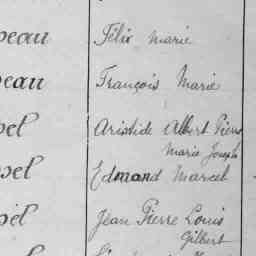 peau Félix Marie
peau François Marie
pel Aristide Albert Pierre
Marie Joseph
pel Edmond Marcel
pel Jean Pierre Louis
Gilbert